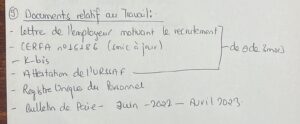 ③ Documents relatif au Travail:
- Lettre de l'employeur motivant le recrutement
- CERFA n° 16186 (mis à jour)
- de 0 de 3 mois)
- K-bis
- Attestation de l'URSSAF
- Registre Unique du Personnel
- Bulletin de Paie - Juin - 2022 - Avril 2023